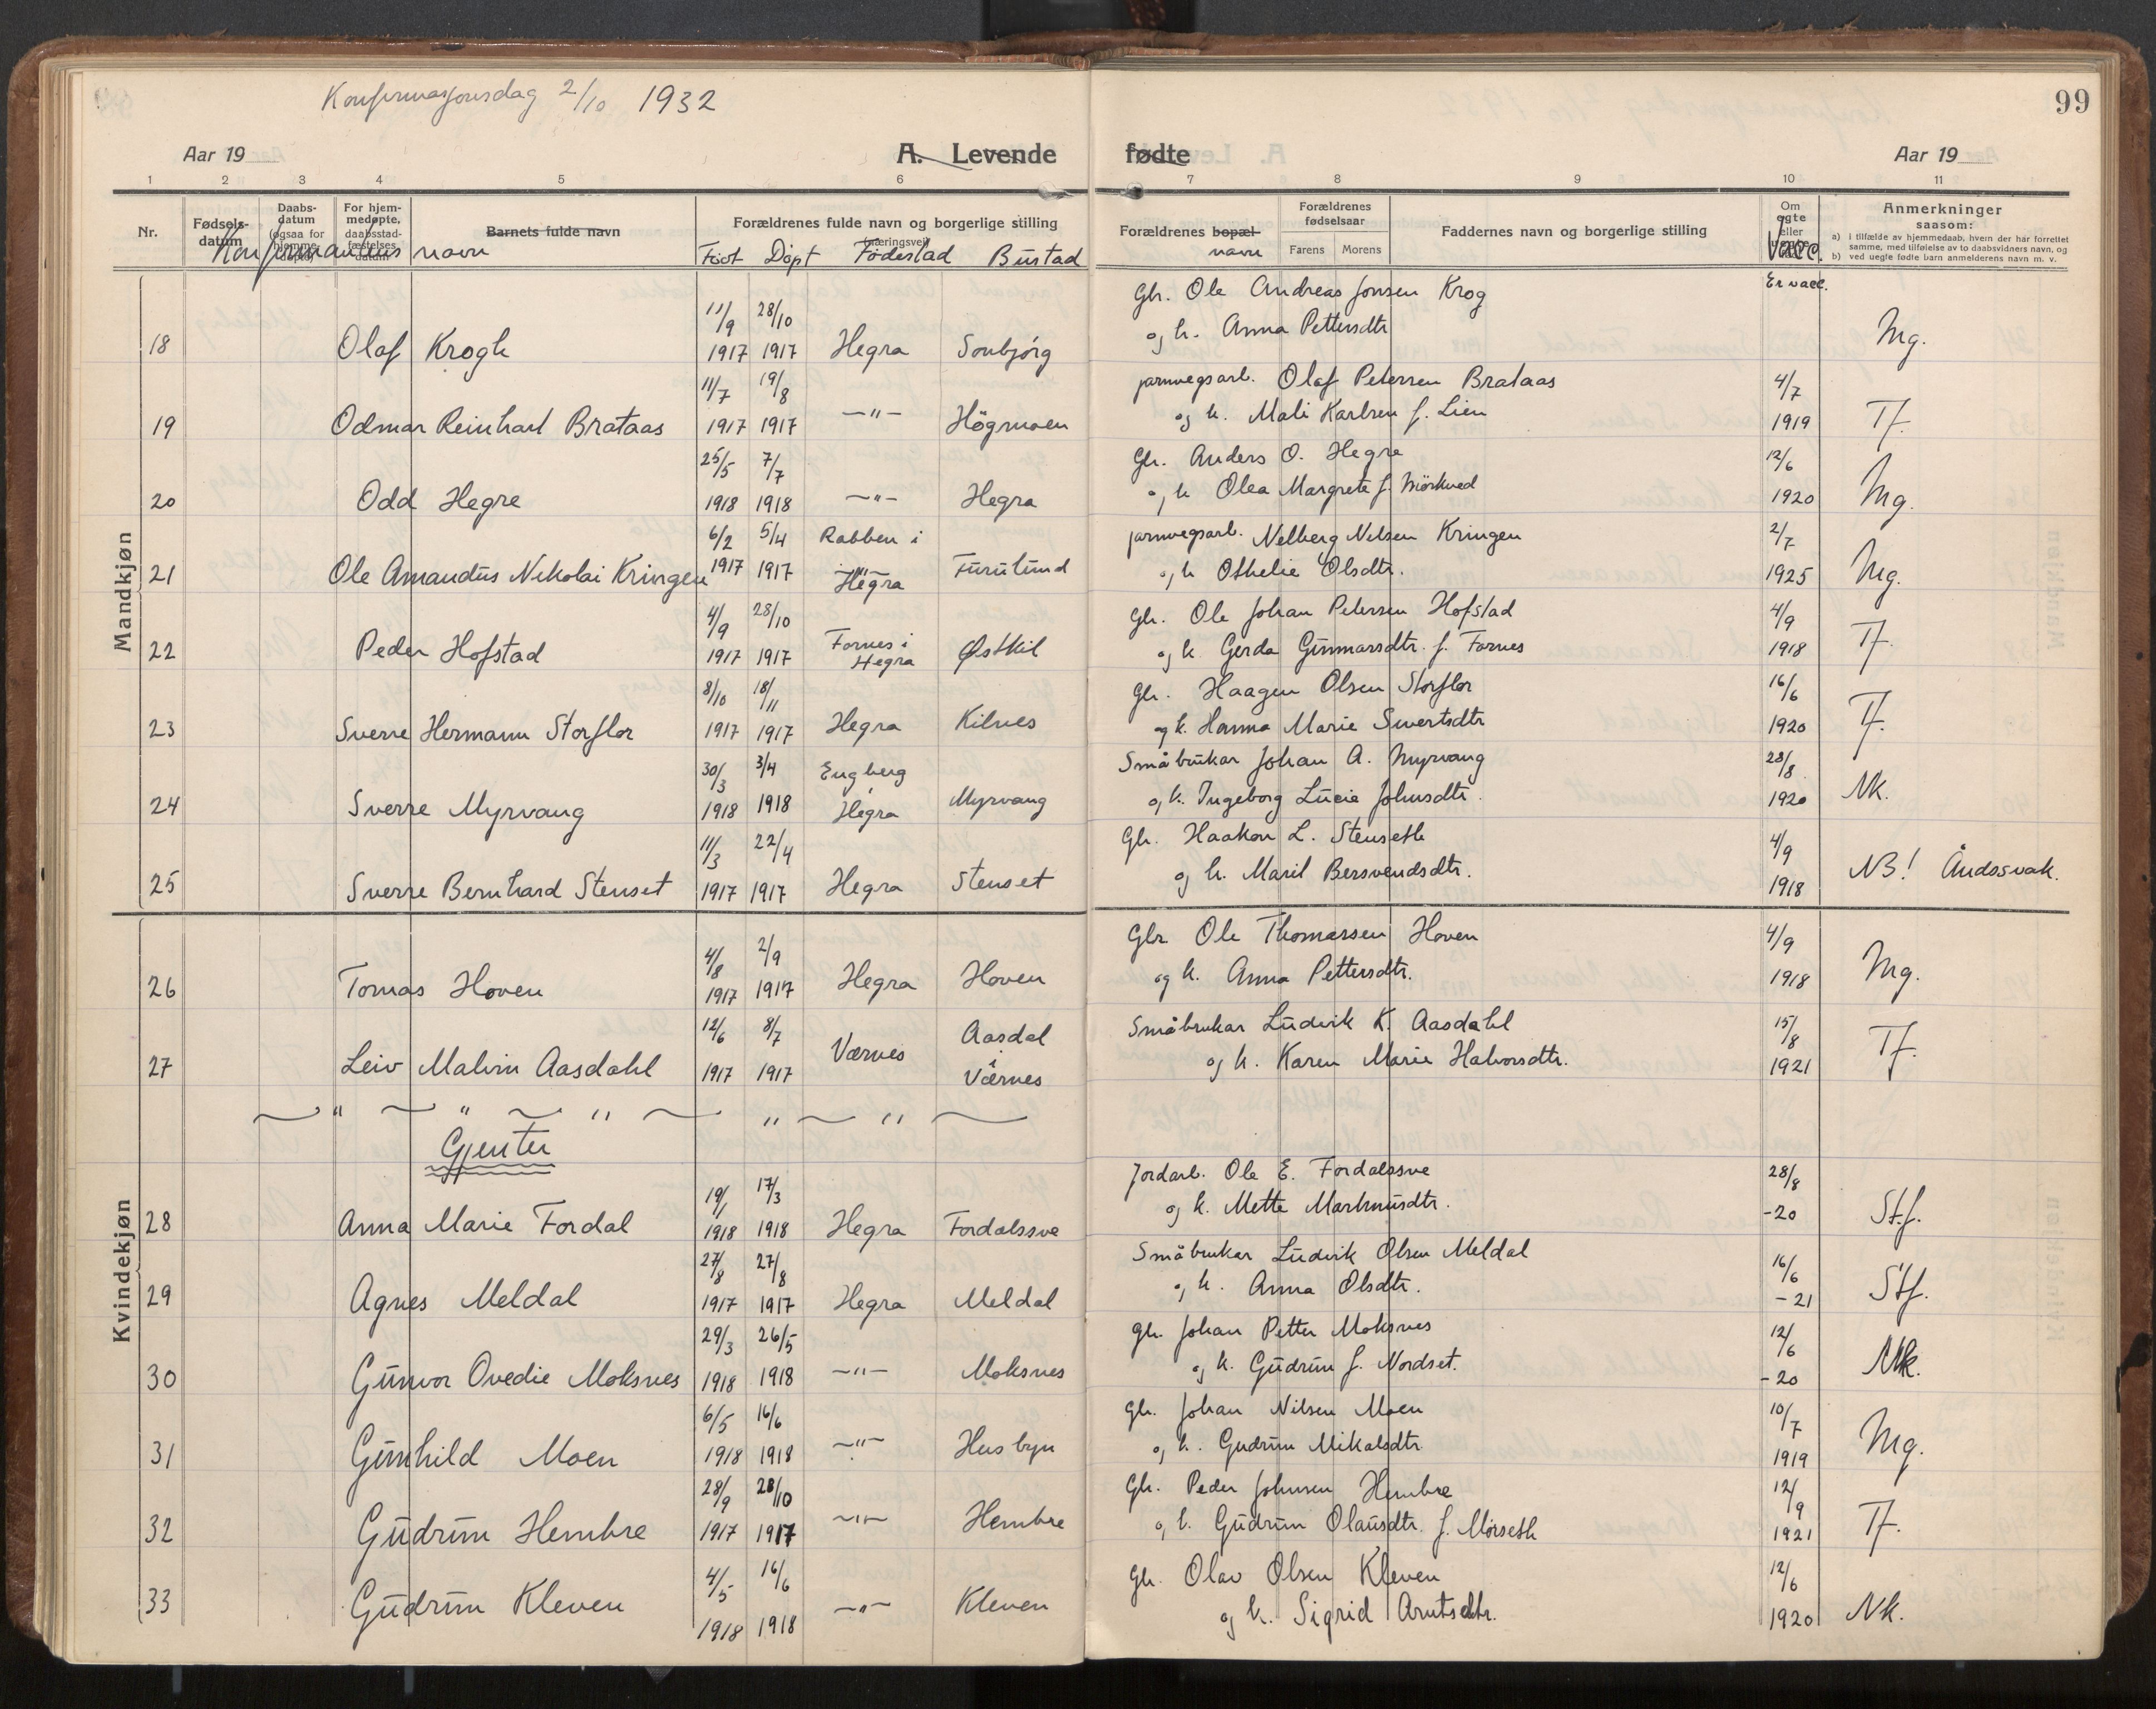 Konfirmasjonsdag 2/10 1932
99
Aar 19
A. Levende
fødte
Aar 19
1 2 3 4 5 6 7 8 9 10 11
Nr.
Fødsels-datum
Daabs-datum (ogsaa for hjemme-døpte)
For hjem-medøpte, daabsstad-fæstelses datum
Barnets fulde navn
Forældrenes fulde navn og borgerlige stilling (næringsvei)
Forældrenes bopæl
Forældrenes fødselsaar
Farens Morens
Faddernes navn og borgerlige stilling
Om egte eller uegte
Anmerkninger saasom:
a) i tilfælde av hjemmedaab, hvem der har forrettet samme, med tilføielse av to daabsvidners navn, og
b) ved uegte fødte barn anmelderens navn m. v.
Konfirmandens navn Født Döpt Födestad Bustad navn Vacc.
Mandkjøn
Gbr. Ole Andreas Jonsen Krog Er vacc.
11/9 28/10 og k. Anna Pettersdtr
18 Olaf Krogh 1917 1917 Hegra Sonbjörg Mg.
11/7 19/8 jarnvegsarb. Olaf Petersen Brataas 4/7
19 Odmar Reinhart Brataas 1917 1917 —"— Högmoen og k. Mali Karlsen f. Lien 1919 Tf.
25/5 7/7 Gbr. Anders O. Hegre 12/6
20 Odd Hegre 1918 1918 —"— Hegra og k Olea Margrete f. Mörkved 1920 Mg.
6/2 5/4 Rabben i jarnvegsarb. Nelberg Nelsen Kringen 2/7
21 Ole Amandus Nikolai Kringen 1917 1917 Hegra Furulund og k Othelie Olsdtr. 1925 Mg.
4/9 28/10 Fornes i Gbr. Ole Johan Petersen Hofstad 4/9
22 Peder Hofstad 1917 1917 Hegra Østkil og k. Gerda Gunnarsdtr. f. Fornes 1918 Tf.
8/10 18/11 Gbr. Haagen Olsen Storflor 16/6
23 Sverre Hermann Storflor 1917 1917 Hegra Kilnes og k. Hanna Marie Sivertsdtr 1920 Tf.
30/3 3/4 Engberg Småbrukar Johan A. Myrvang 28/8
24 Sverre Myrvang 1918 1918 Hegra Myrvang og k. Ingeborg Lucie Johnsdtr. 1920 Nk.
11/3 22/4 Gbr. Haakon L. Stenseth 4/9
25 Sverre Bernhard Stenset 1917 1917 Hegra Stenset og k. Marit Bersvendsdtr. 1918 NB! Åndssvak.
4/8 2/9 Gbr Ole Thomassen Hoven 4/9
26 Tomas Hoven 1917 1917 Hegra Hoven og k. Anna Pettersdtr. 1918 Mg.
12/6 8/7 Aasdal i Småbrukar Ludvik K. Aasdahl 15/8
27 Leiv Malvin Aasdahl 1917 1917 Værnes Værnes og k. Karen Marie Halvorsdtr. 1921 Tf.
— " — " — " — " — " —
Gjenter
Kvindekjøn
19/1 17/3 Jordarb. Ole E. Fordalssve 28/8
28 Anna Marie Fordal 1918 1918 Hegra Fordalssve og k. Mette Markmusdtr. -20 St.f.
27/8 27/8 Småbrukar Ludvik Olsen Meldal 16/6
29 Agnes Meldal 1917 1917 Hegra Meldal og k. Anna Olsdtr. -21 Stf.
29/3 26/5 Gbr. Johan Petter Moksnes 12/6
30 Gunvor Ovedie Moksnes 1918 1918 —"— Moksnes og k. Gudrun f. Nordset. -20 Nk.
6/5 16/6 Gbr. Johan Nilsen Moen 10/7
31 Gunhild Moen 1918 1918 —"— Husbyn og k. Gudrun Mikalsdtr. 1919 Mg.
28/9 28/10 Gbr. Peder Johnsen Hembre 12/9
32 Gudrun Hembre 1917 1917 —"— Hembre og k. Gudrun Olausdtr. f. Mörseth 1921 Tf.
4/5 16/6 Gbr. Olav Olsen Kleven 12/6
33 Gudrun Kleven 1918 1918 —"— Kleven og k. Sigrid Arntsdtr. 1920 Nk.